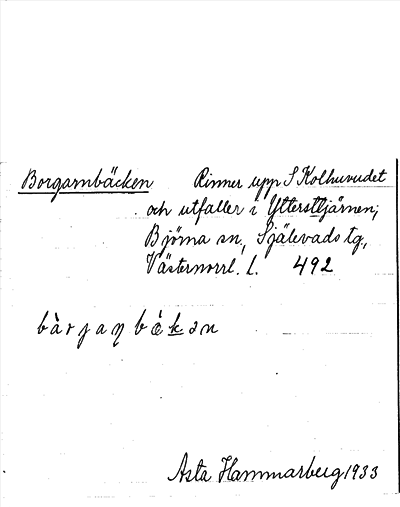 Borgarnbäcken Rinner upp S Kolhuvudet
och utfaller i Yttersttjärnen;
Björna sn, Själevads tg,
Västernorrl. L. 492
bàrjaŋbèkən
Asta Hammarberg 1933